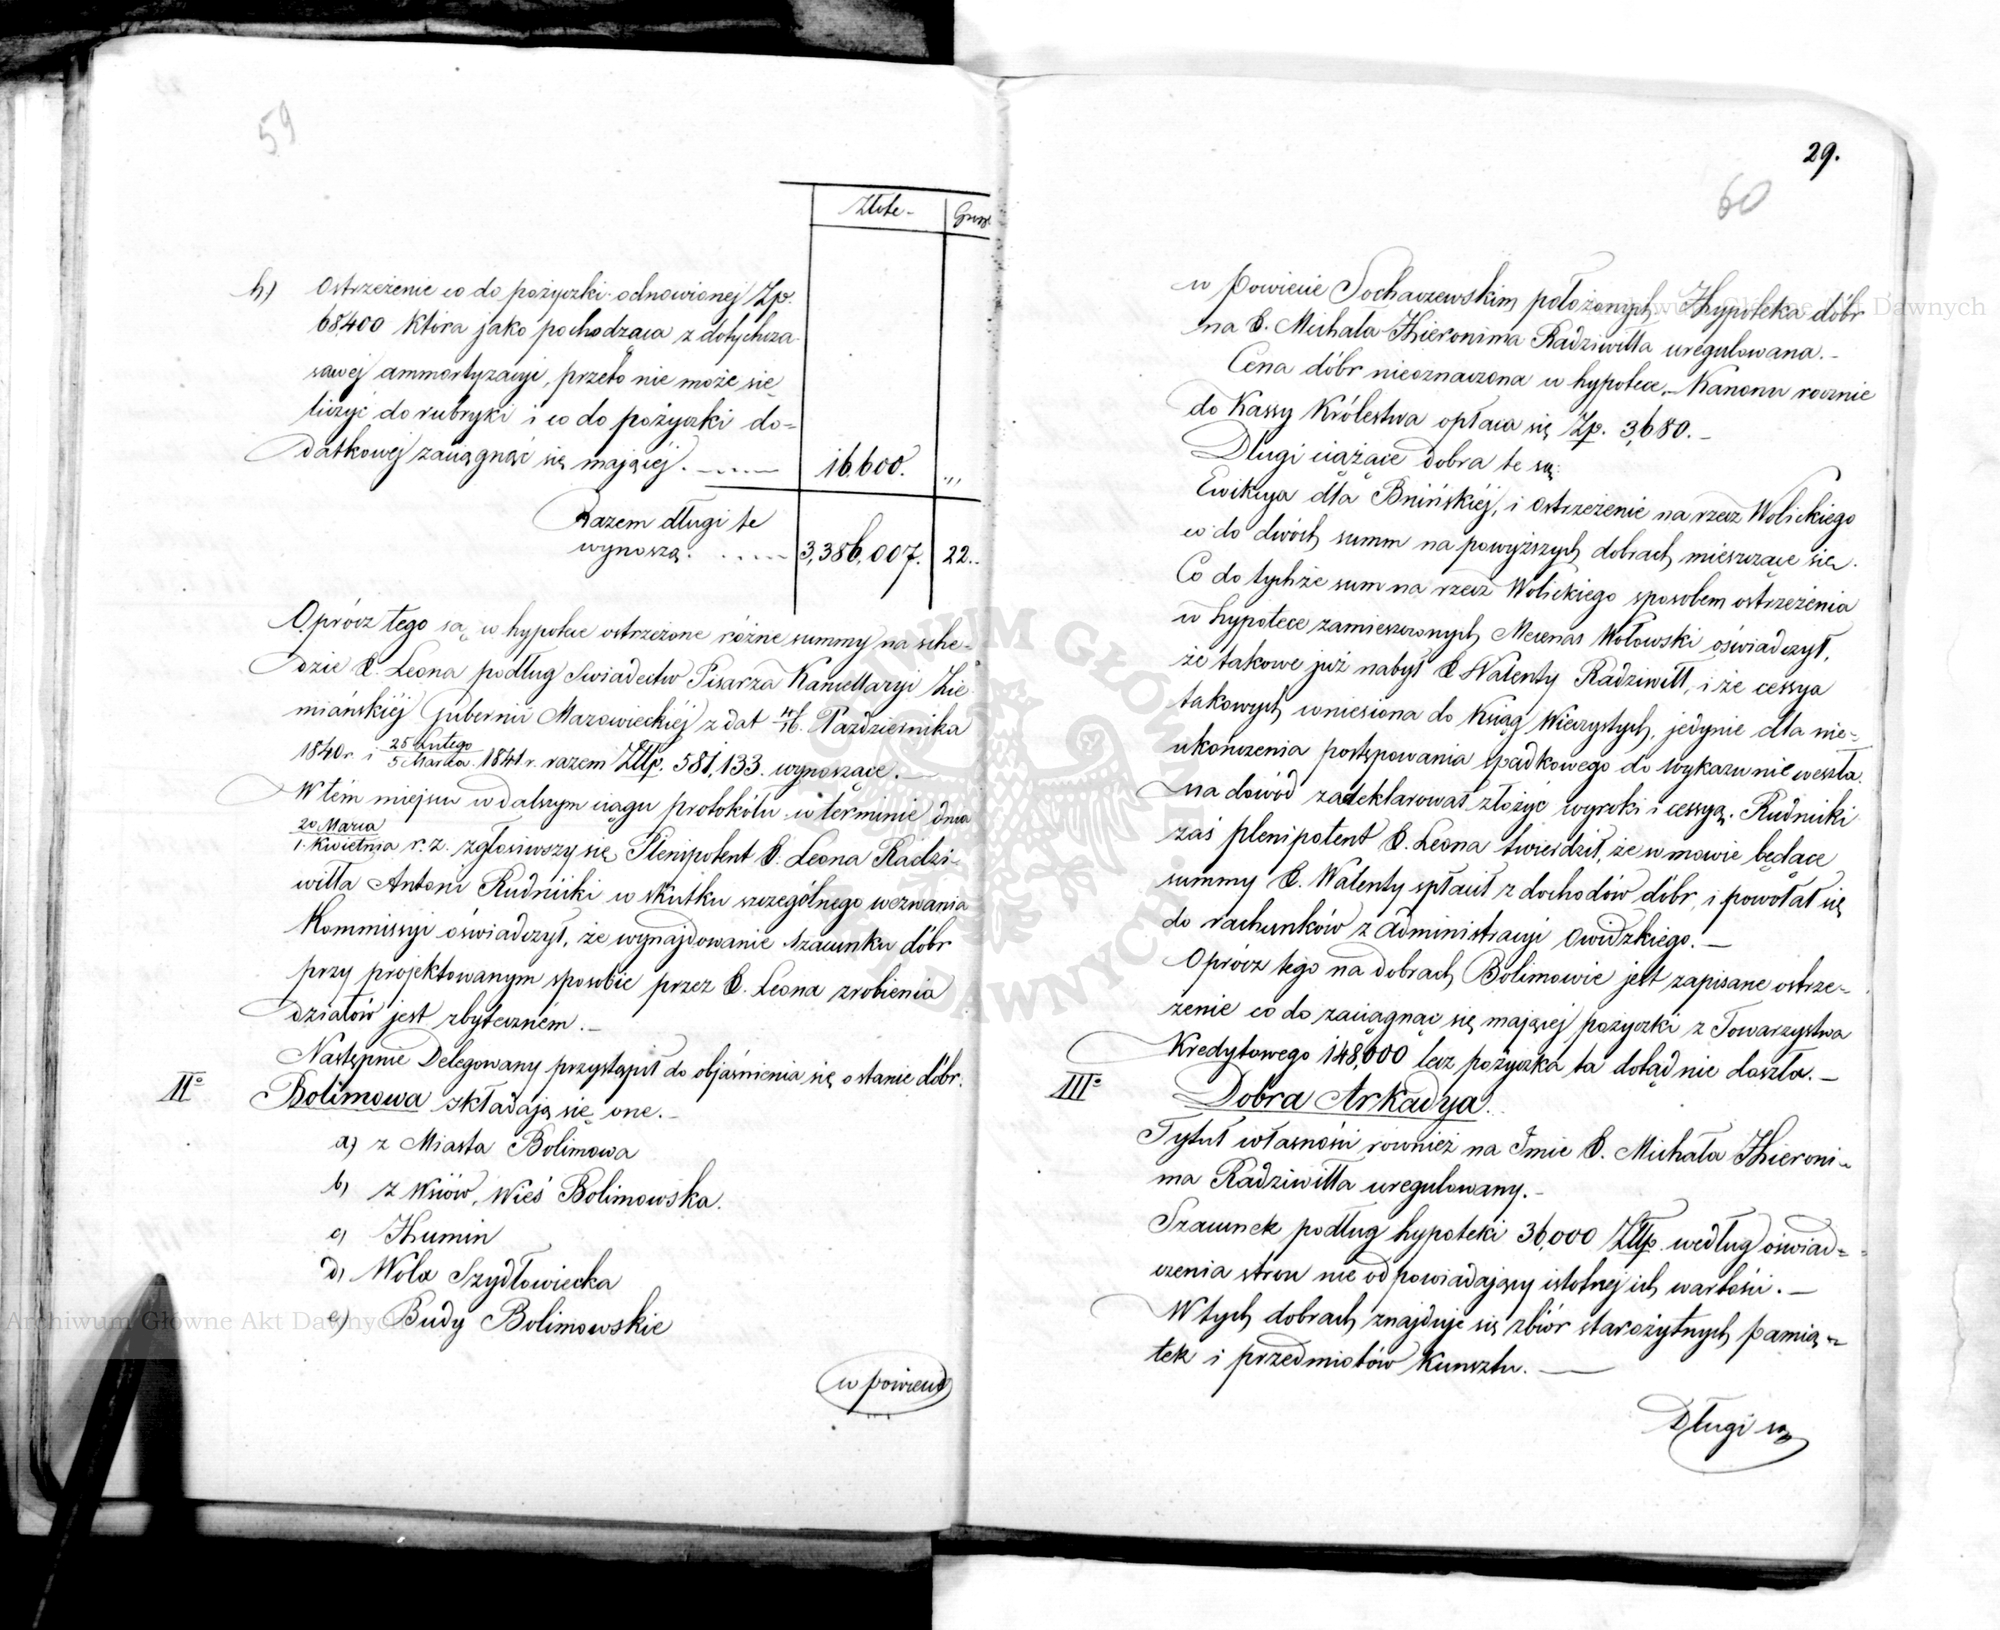 59
Złote
Grosz.
h) Ostrzeżenie co do pożyczki odnowionej Zp.
68,400 która jako pochodząca z dotychcza-
sowej ammortyzacyi, przeto nie może się
liczyć do rubryki i co do pożyczki do=
datkowej zaciągnąć się mającej. 16,600. „
Razem długi te
wynoszą. 3,386,007. 22.
Oprócz tego są w hypotece ostrzeżone różne summy na sche=
dzie X. Leona podług Swiadectw Pisarza Kancellaryi Zie
miańskiéj Gubernii Mazowieckiéj z dat 4/16. Października
1840 r. i 25 Lutego/5 Marca 1841 r. razem Złłp. 581,133. wynoszące.—
W tém miejscu w dalszym ciągu protokółu w terminie dnia
20 Marca/1. Kwietnia r. z. zgłosiwszy się Plenipotent X. Leona Radzi-
wiłła Antoni Rudnicki w skutku szczególnego wezwania
Kommissyi oświadczył, że wynajdowanie szacunku dóbr
przy projektowanym sposobie przez X. Leona zrobienia
działów jest zbytecznem.—
Następnie Delegowany przystąpił do objaśnienia się o stanie dóbr.
IIo Bolimowa składają się one.—
a) z Miasta Bolimowa
b) z wsiów, Wieś Bolimowska.
c) Humin
d) Wola Szydłowiecka
e) Budy Bolimowskie
w powiecie
29.
60
w Powiecie Sochaczewskim położonych, Hypoteka dóbr
na X. Michała Hieronima Radziwiłła uregulowana.—
Cena dóbr nieoznaczona w hypotece.—Kanonu rocznie
do Kassy Królestwa opłaca się Zp. 3,680.—
Długi ciążące dobra te są:
Ewikcya dla Bnińskiéj, i ostrzeżenie na rzecz Wolickiego
co do dwóch summ na powyższych dobrach mieszczące się.
Co do tychże sum na rzecz Wolickiego sposobem ostrzeżenia
w hypotece zamieszczonych Mecenas Wołowski oświadczył,
że takowe już nabył X Walenty Radziwiłł, i że cessya
takowych wniesiona do Ksiąg Wieczystych, jedynie dla nie=
ukończenia postępowania spadkowego do wykazu nie weszła.
na dowód zadeklarował złożyć wyroki i cessyą. Rudnicki
zaś plenipotent X. Leona twierdził, że w mowie będące
summy X. Walenty spłacił z dochodów dóbr, i powołał się
do rachunków z administracyi Owidzkiego.—
Oprócz tego na dobrach Bolimowie jest zapisane ostrze=
żenie co do zaciągnąć się mającej pożyczki z Towarzystwa
Kredytowego 148,000 lecz pożyczka ta dotąd nie doszła.—
IIIo Dobra Arkadya.
Tytuł własności również na Imie X. Michała Hieroni=
ma Radziwiłła uregulowany.—
Szacunek podług hypoteki 36,000 Złłp. według oświad=
czenia stron nie odpowiadający istotnej ich wartości.—
W tych dobrach znajduje się zbiór starożytnych pamią=
tek i przedmiotów Kunsztu.—
Długi są
Archiwum Główne Akt Dawnych
Archiwum Główne Akt Dawnych
ARCHIWUM GŁÓWNE AKT DAWNYCH